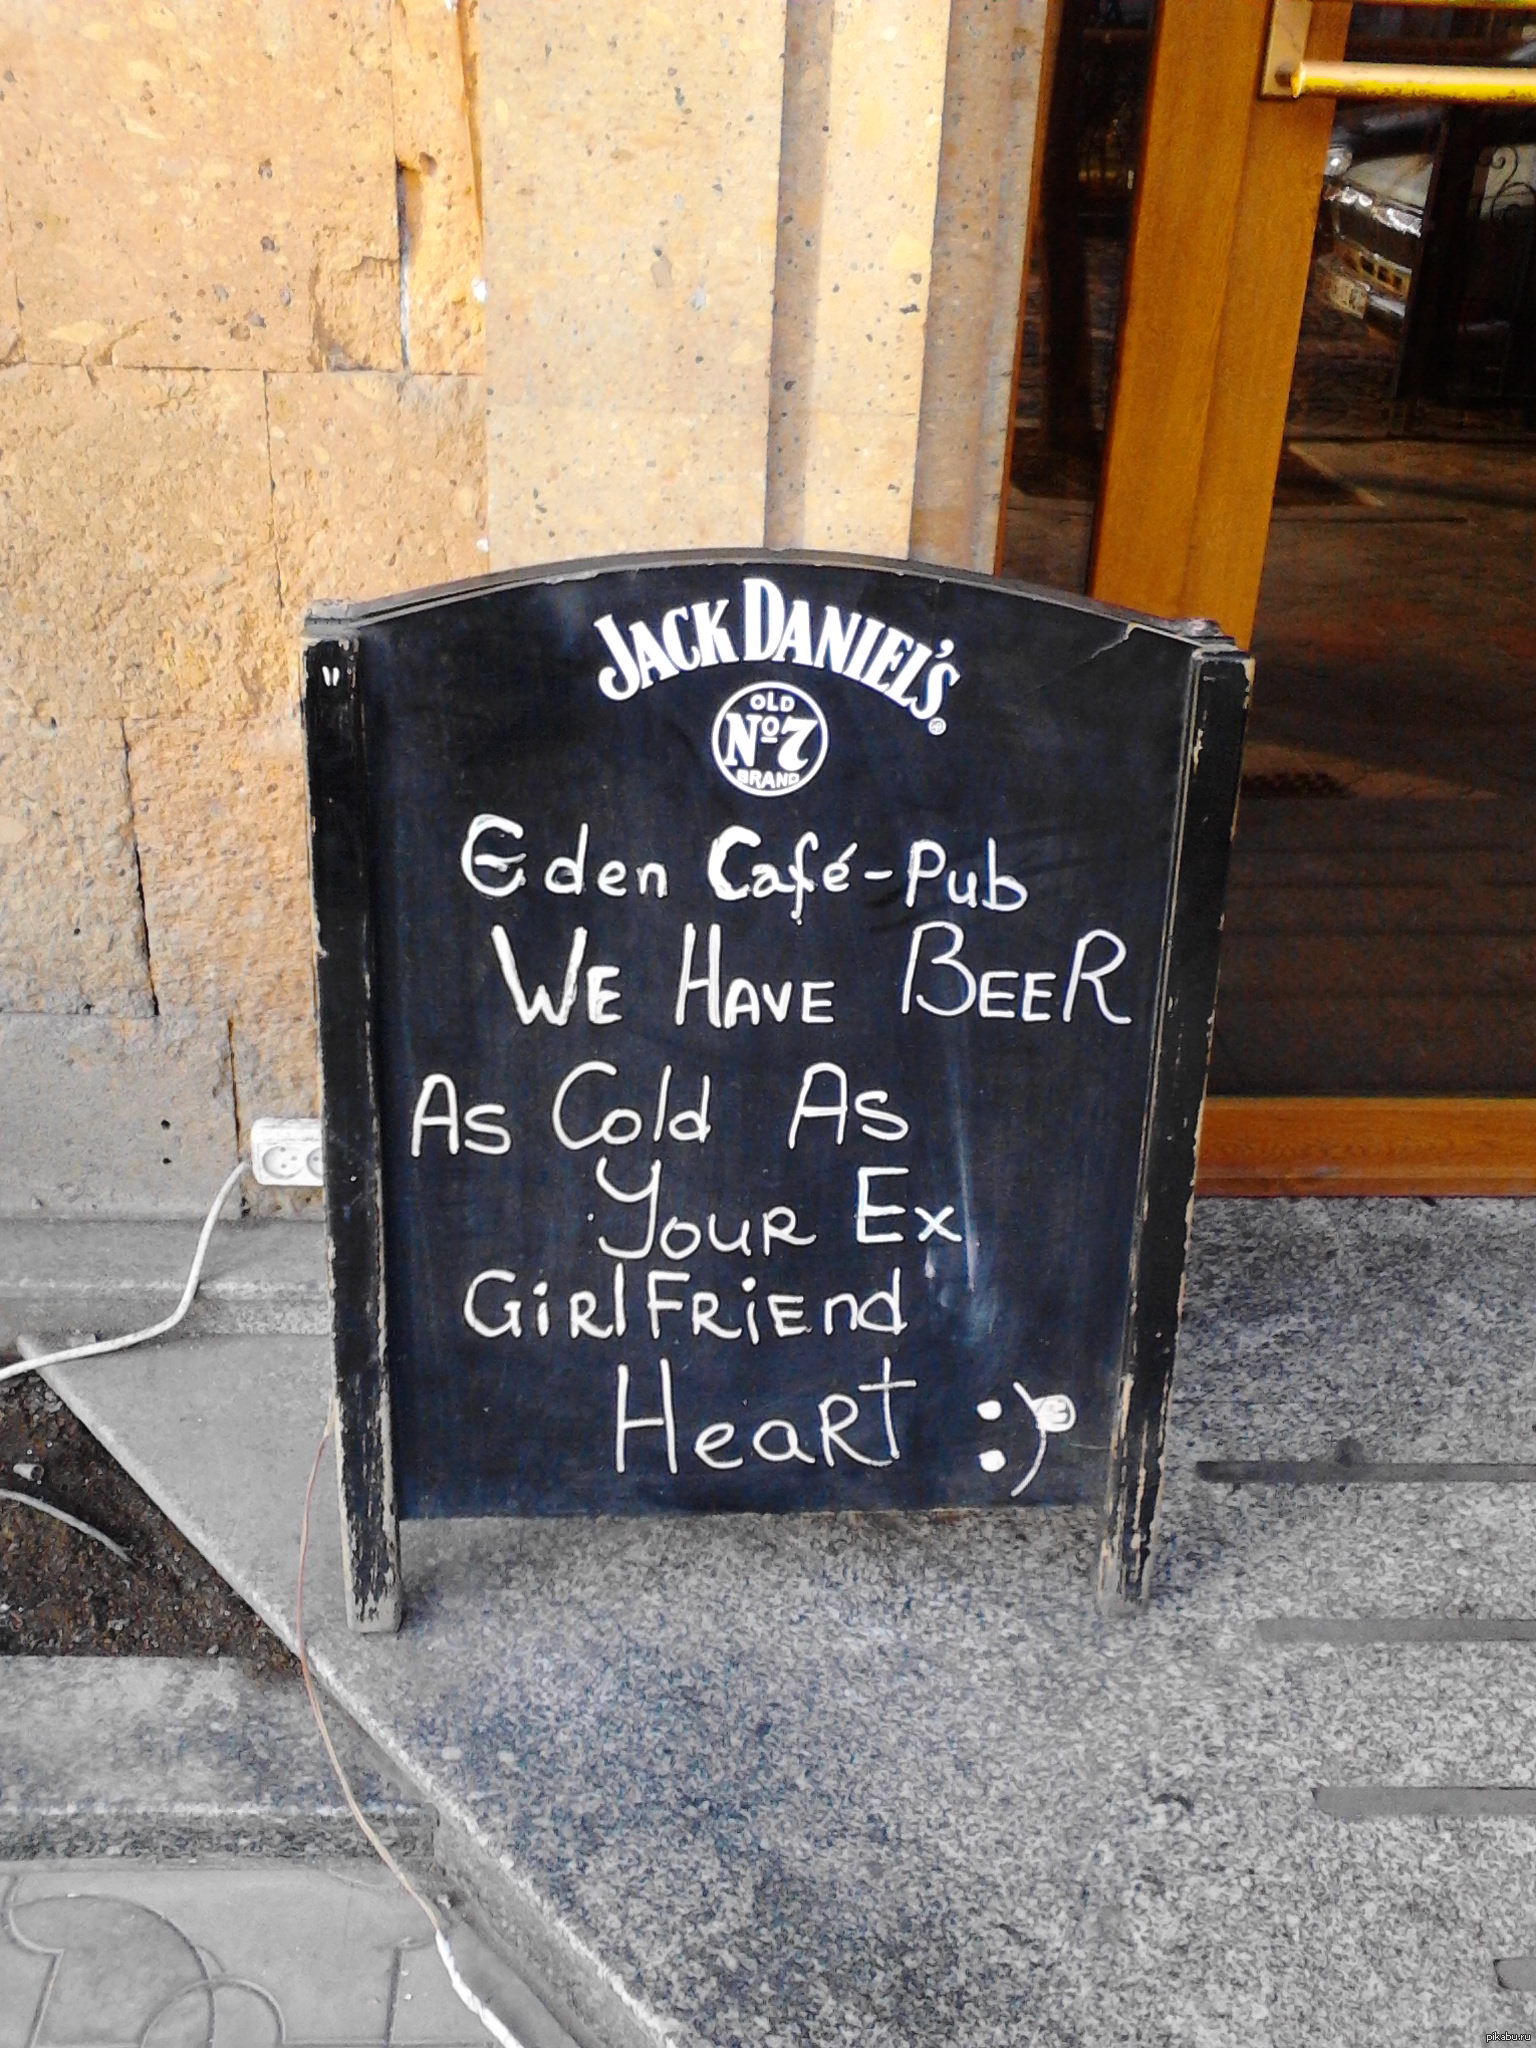 JACK DANIEL'S
OLD
Nº7
BRAND
Eden Café-Pub
WE HAVE BEER
As Cold As
YouR Ex
GiRlFRiEnd
HeaRt :)
pikabu.ru